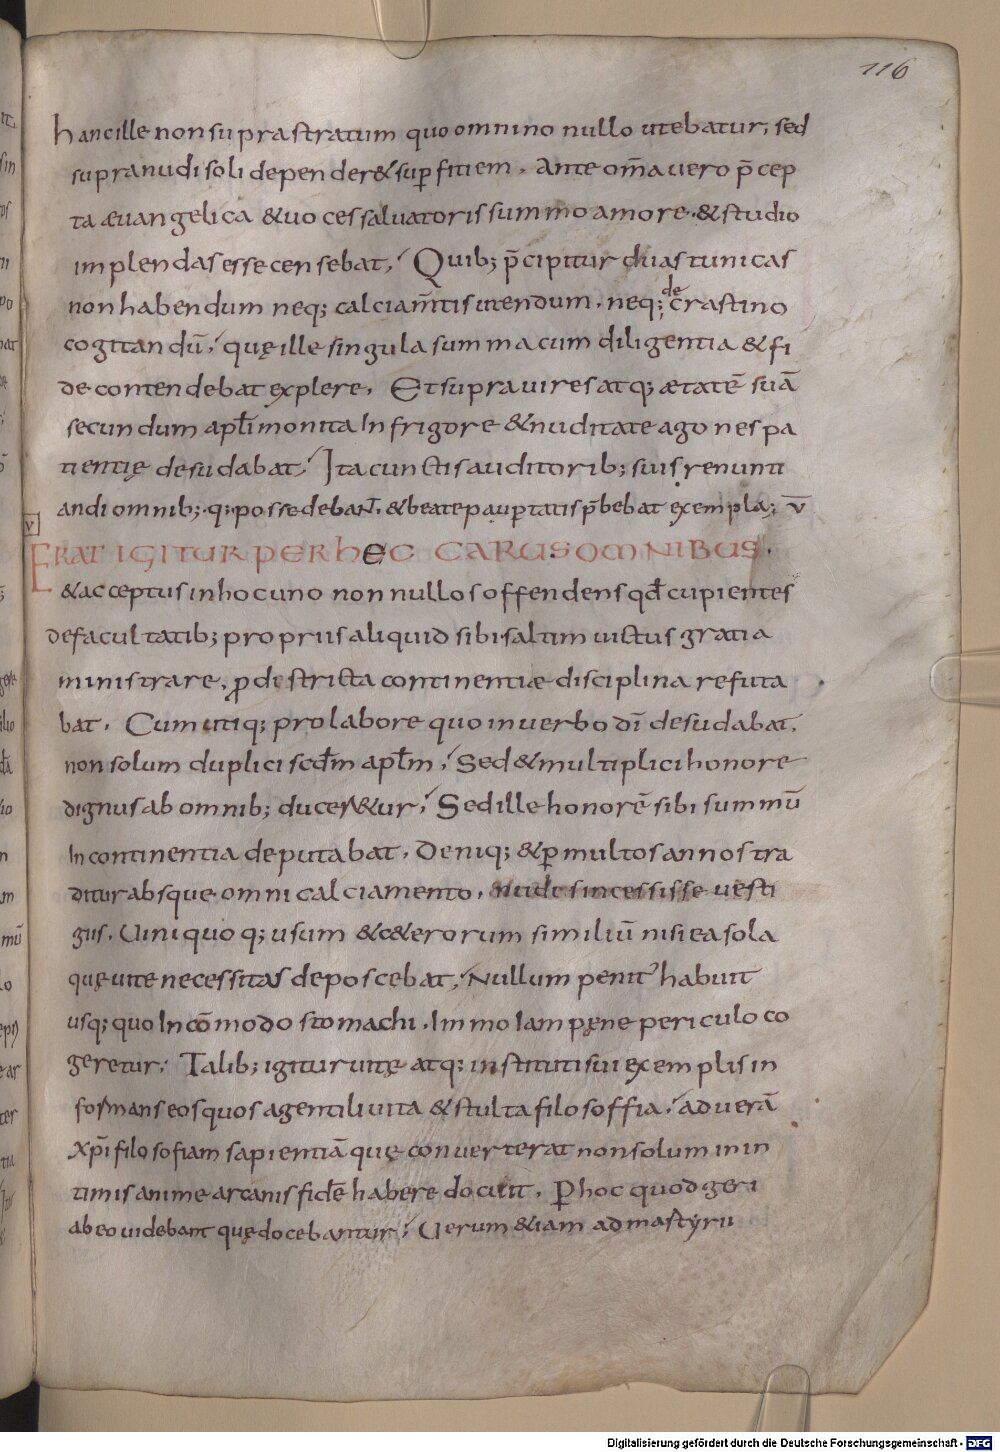 116
hanc ille non supra stratum quo omnino nullo utebatur; sed
supra nudi soli depender& sup̱fitiem. Ante om̄a uero p̄cep
ta æuangelica & uoces saluatoris summo amore & studio
implendas esse censebat; Quib; p̄cipitur duas tunicas
non habendum neq; calciam̄tis utendum. neq; de crastino
cogitandū; quę ille singula summa cum diligentia & fi
de contendebat explere. Et supra uires atq; ætatē suā
secundum apl̄i monita In frigore & nuditate agones pa
tientię desudabat; Ita cunctis auditorib; suis renunti
andi omnib;. q; possedebaNT. & beate paup̱tatis p̄bebat exempla; v̄
v
ERAT IGITUR PER HEC CARUS OMNIBUS.
& acceptus in hoc uno non nullos offendens qđ cupientes
de facultatib; propriis aliquid sibi saltim uictus gratia
ministrare, ꝓ districta continentiæ disciplina refuta
bat. Cum utiq; pro labore quo in uerbo dī desudabat.
non solum duplici scđm apl̄m; Sed & multiplici honore
dignus ab omnib; ducer&ur; Sed ille honorē sibi summū
In continentia deputabat. Deniq; & p̱ multos annos tra
ditur absque omni calciamento. nudis incessisse uesti
giis. Uini quoq; usum & c&erorum similiū nisi ea sola
quę uite necessitas deposcebat; Nullum penit' habuit
usq; quo In cōmodo stomachi. Immo Iam pęne periculo co
geretur; Talib; igitur uitę atq; instituti sui exemplis in
formans eos quos a gentili uita & stulta filosoffia; ad uerā
xp̄i filosofiam sapientiā quę conuerterat non solum in in
timis anime arcanis fidē habere docuit. P̱ hoc quod geri
ab eo uidebant quę docebantur; Uerum &iam ad martyrii
Digitalisierung gefördert durch die Deutsche Forschungsgemeinschaft - DFG